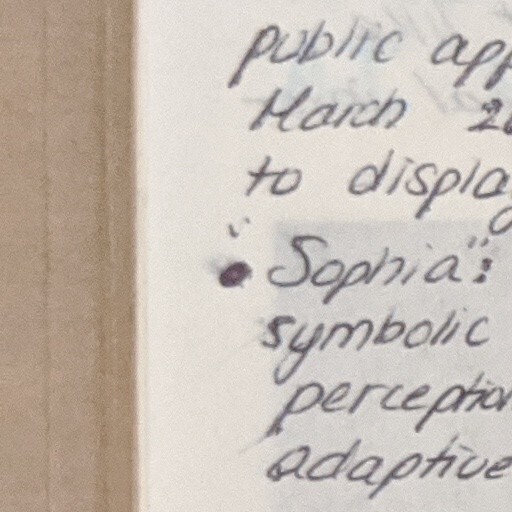 public app
March 20
to display
• "Sophia":
symbolic
perception
adaptive